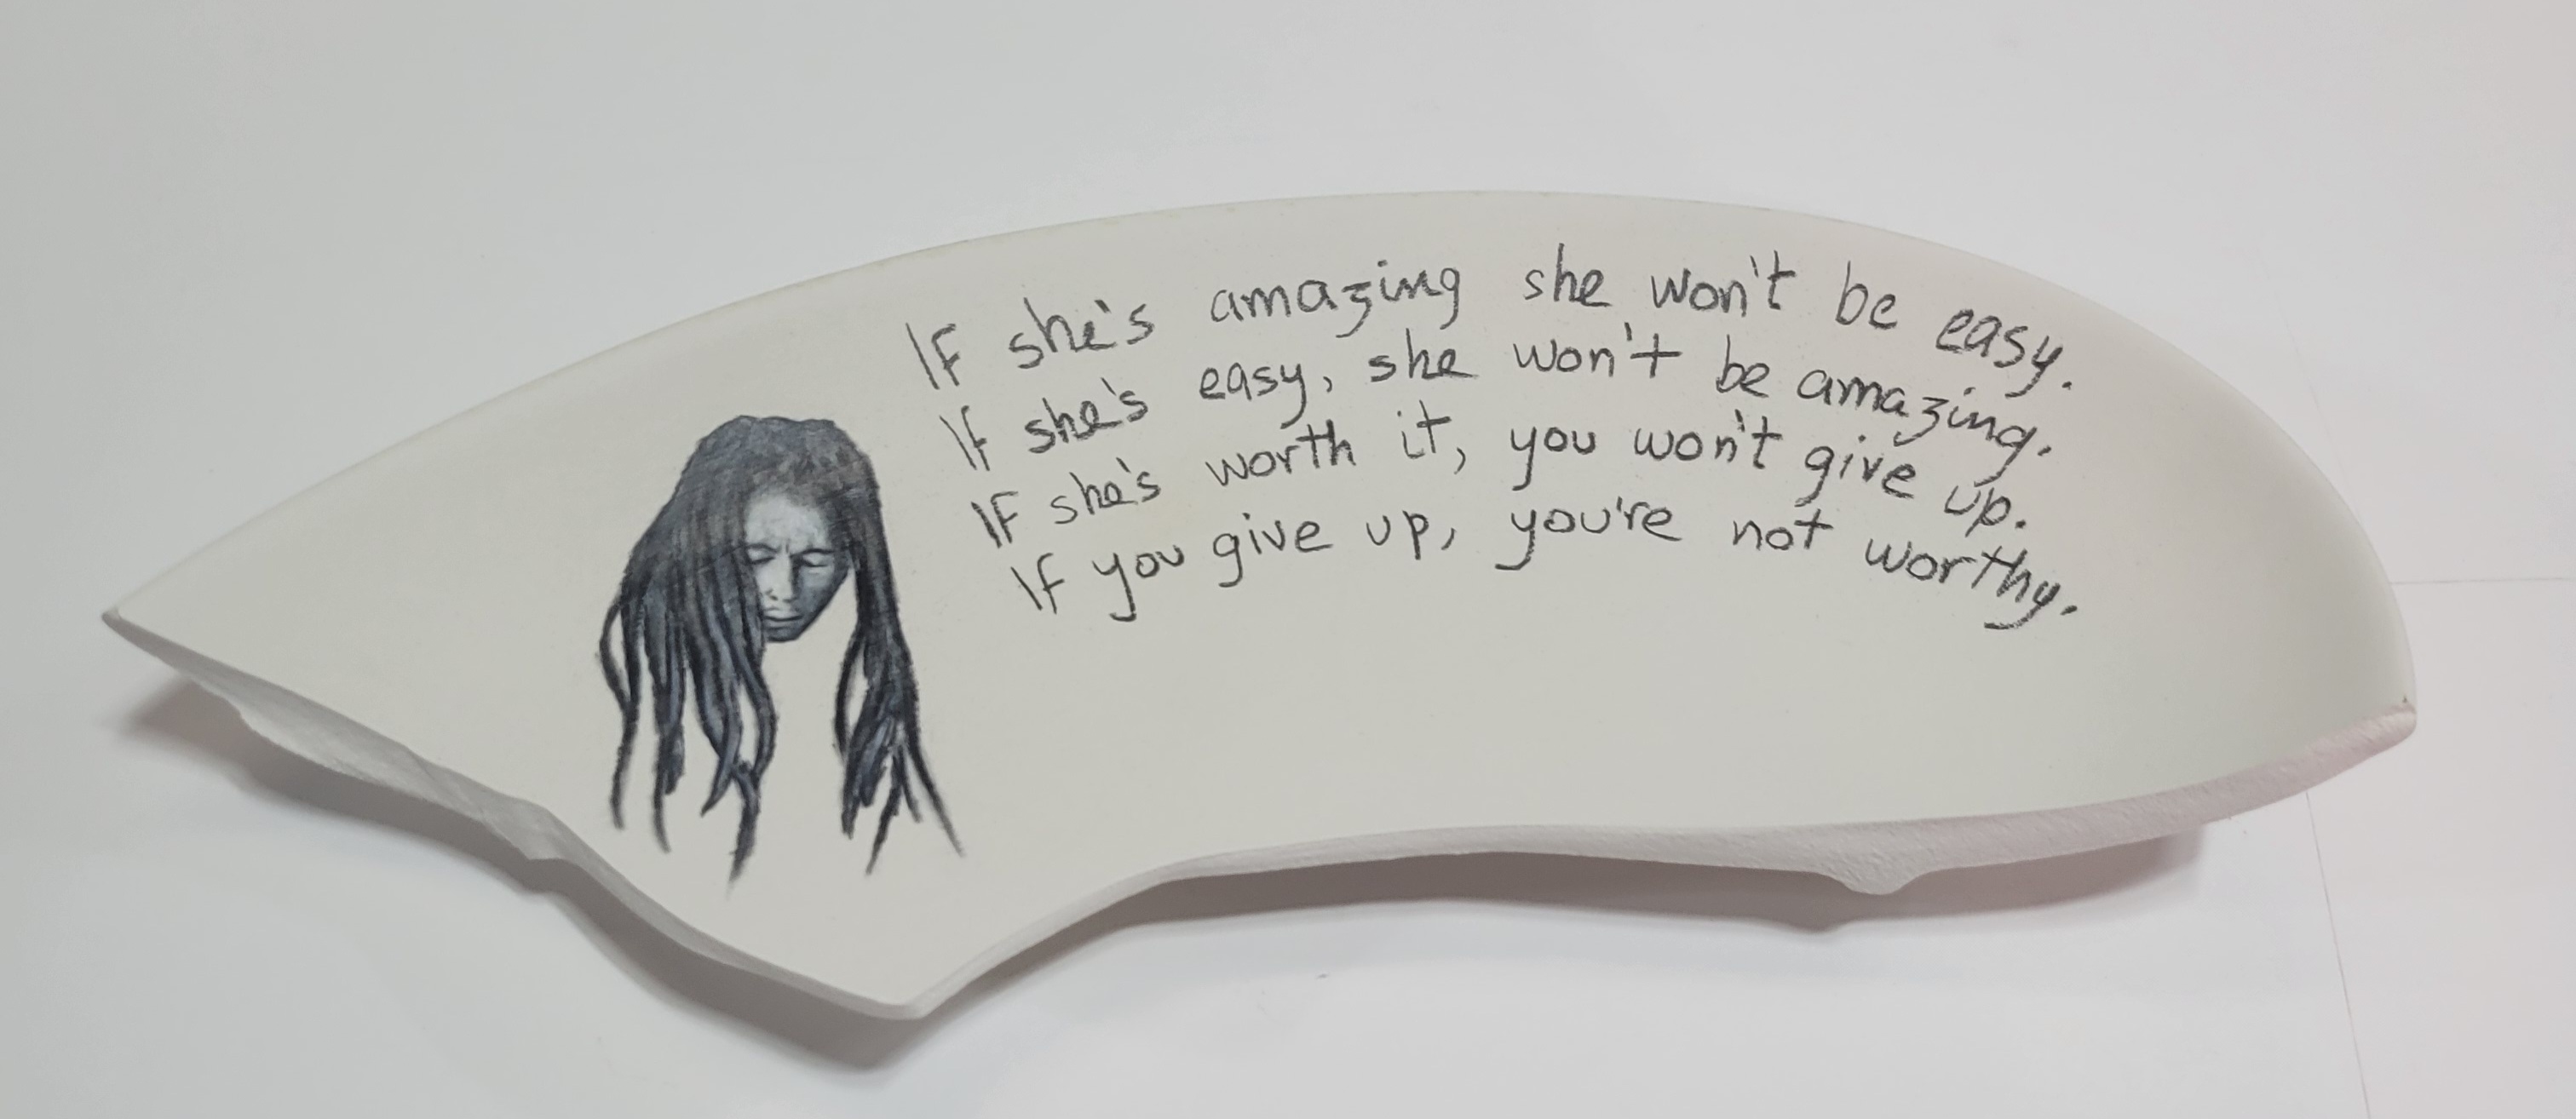 If she's amazing she won't be easy.
If she's easy, she won't be amazing.
If she's worth it, you won't give up.
If you give up, you're not worthy.